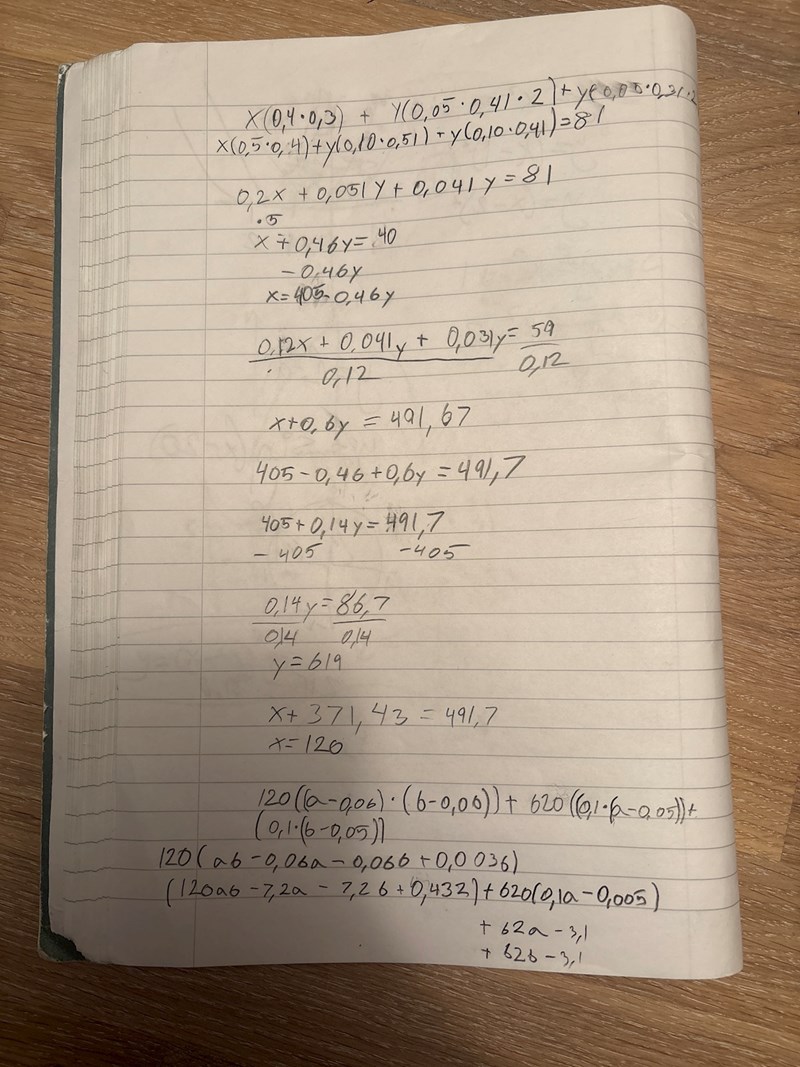 x(0,4·0,3) + y(0,05·0,41·2)+y(0,05·0,31·2
x(0,5·0,4)+y(0,10·0,51)+y(0,10·0,41)=81
0,2x + 0,051y + 0,041y = 81
·5
x + 0,46y = 40
- 0,46y
x = 405 - 0,46y
0,12x + 0,041y + 0,031y = 59
0,12 0,12
x+0,6y = 491,67
405 - 0,46 + 0,6y = 491,7
405 + 0,14y = 491,7
- 405 - 405
0,14y = 86,7
0,14 0,14
y = 619
x + 371,43 = 491,7
x = 120
120((a-0,06)·(b-0,06)) + 620((0,1·(a-0,05))+
(0,1·(b-0,05))
120(ab - 0,06a - 0,06b + 0,0036)
(120ab - 7,2a - 7,2b + 0,432) + 620(0,1a - 0,005)
+ 62a - 3,1
+ 62b - 3,1